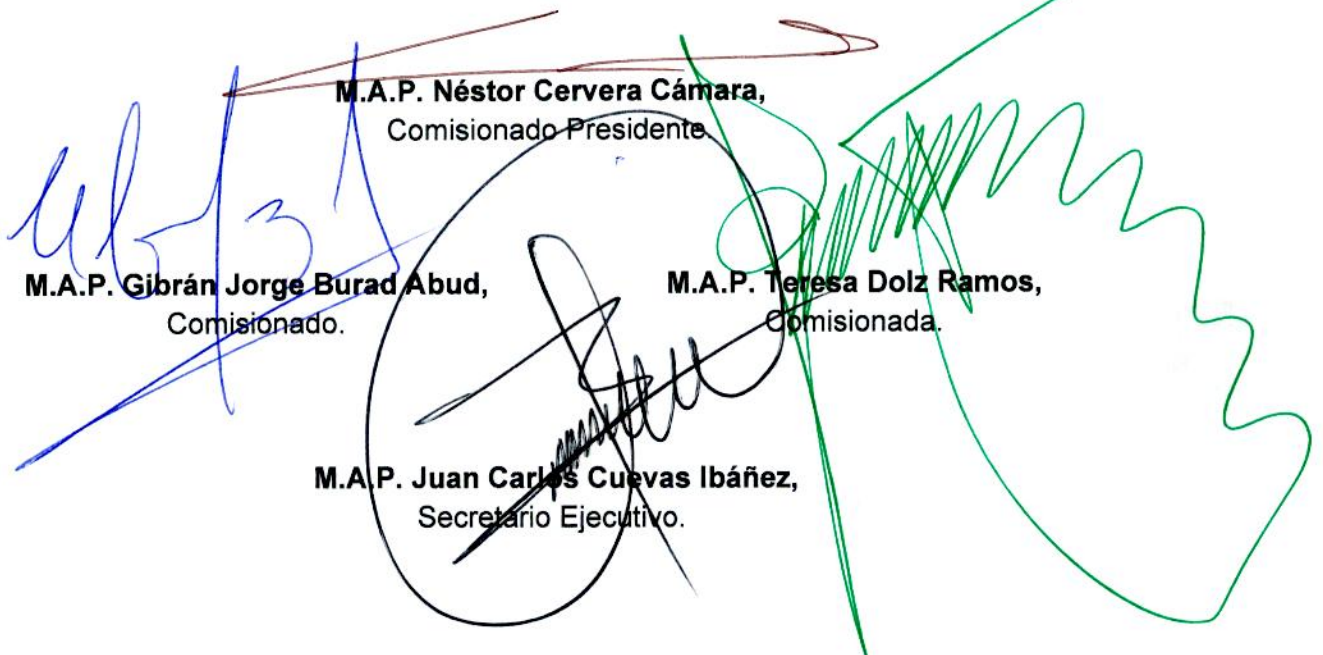 M.A.P. Néstor Cervera Cámara,
Comisionado Presidente.
M.A.P. Gibrán Jorge Burad Abud,
Comisionado.
M.A.P. Teresa Dolz Ramos,
Comisionada.
M.A.P. Juan Carlos Cuevas Ibáñez,
Secretario Ejecutivo.